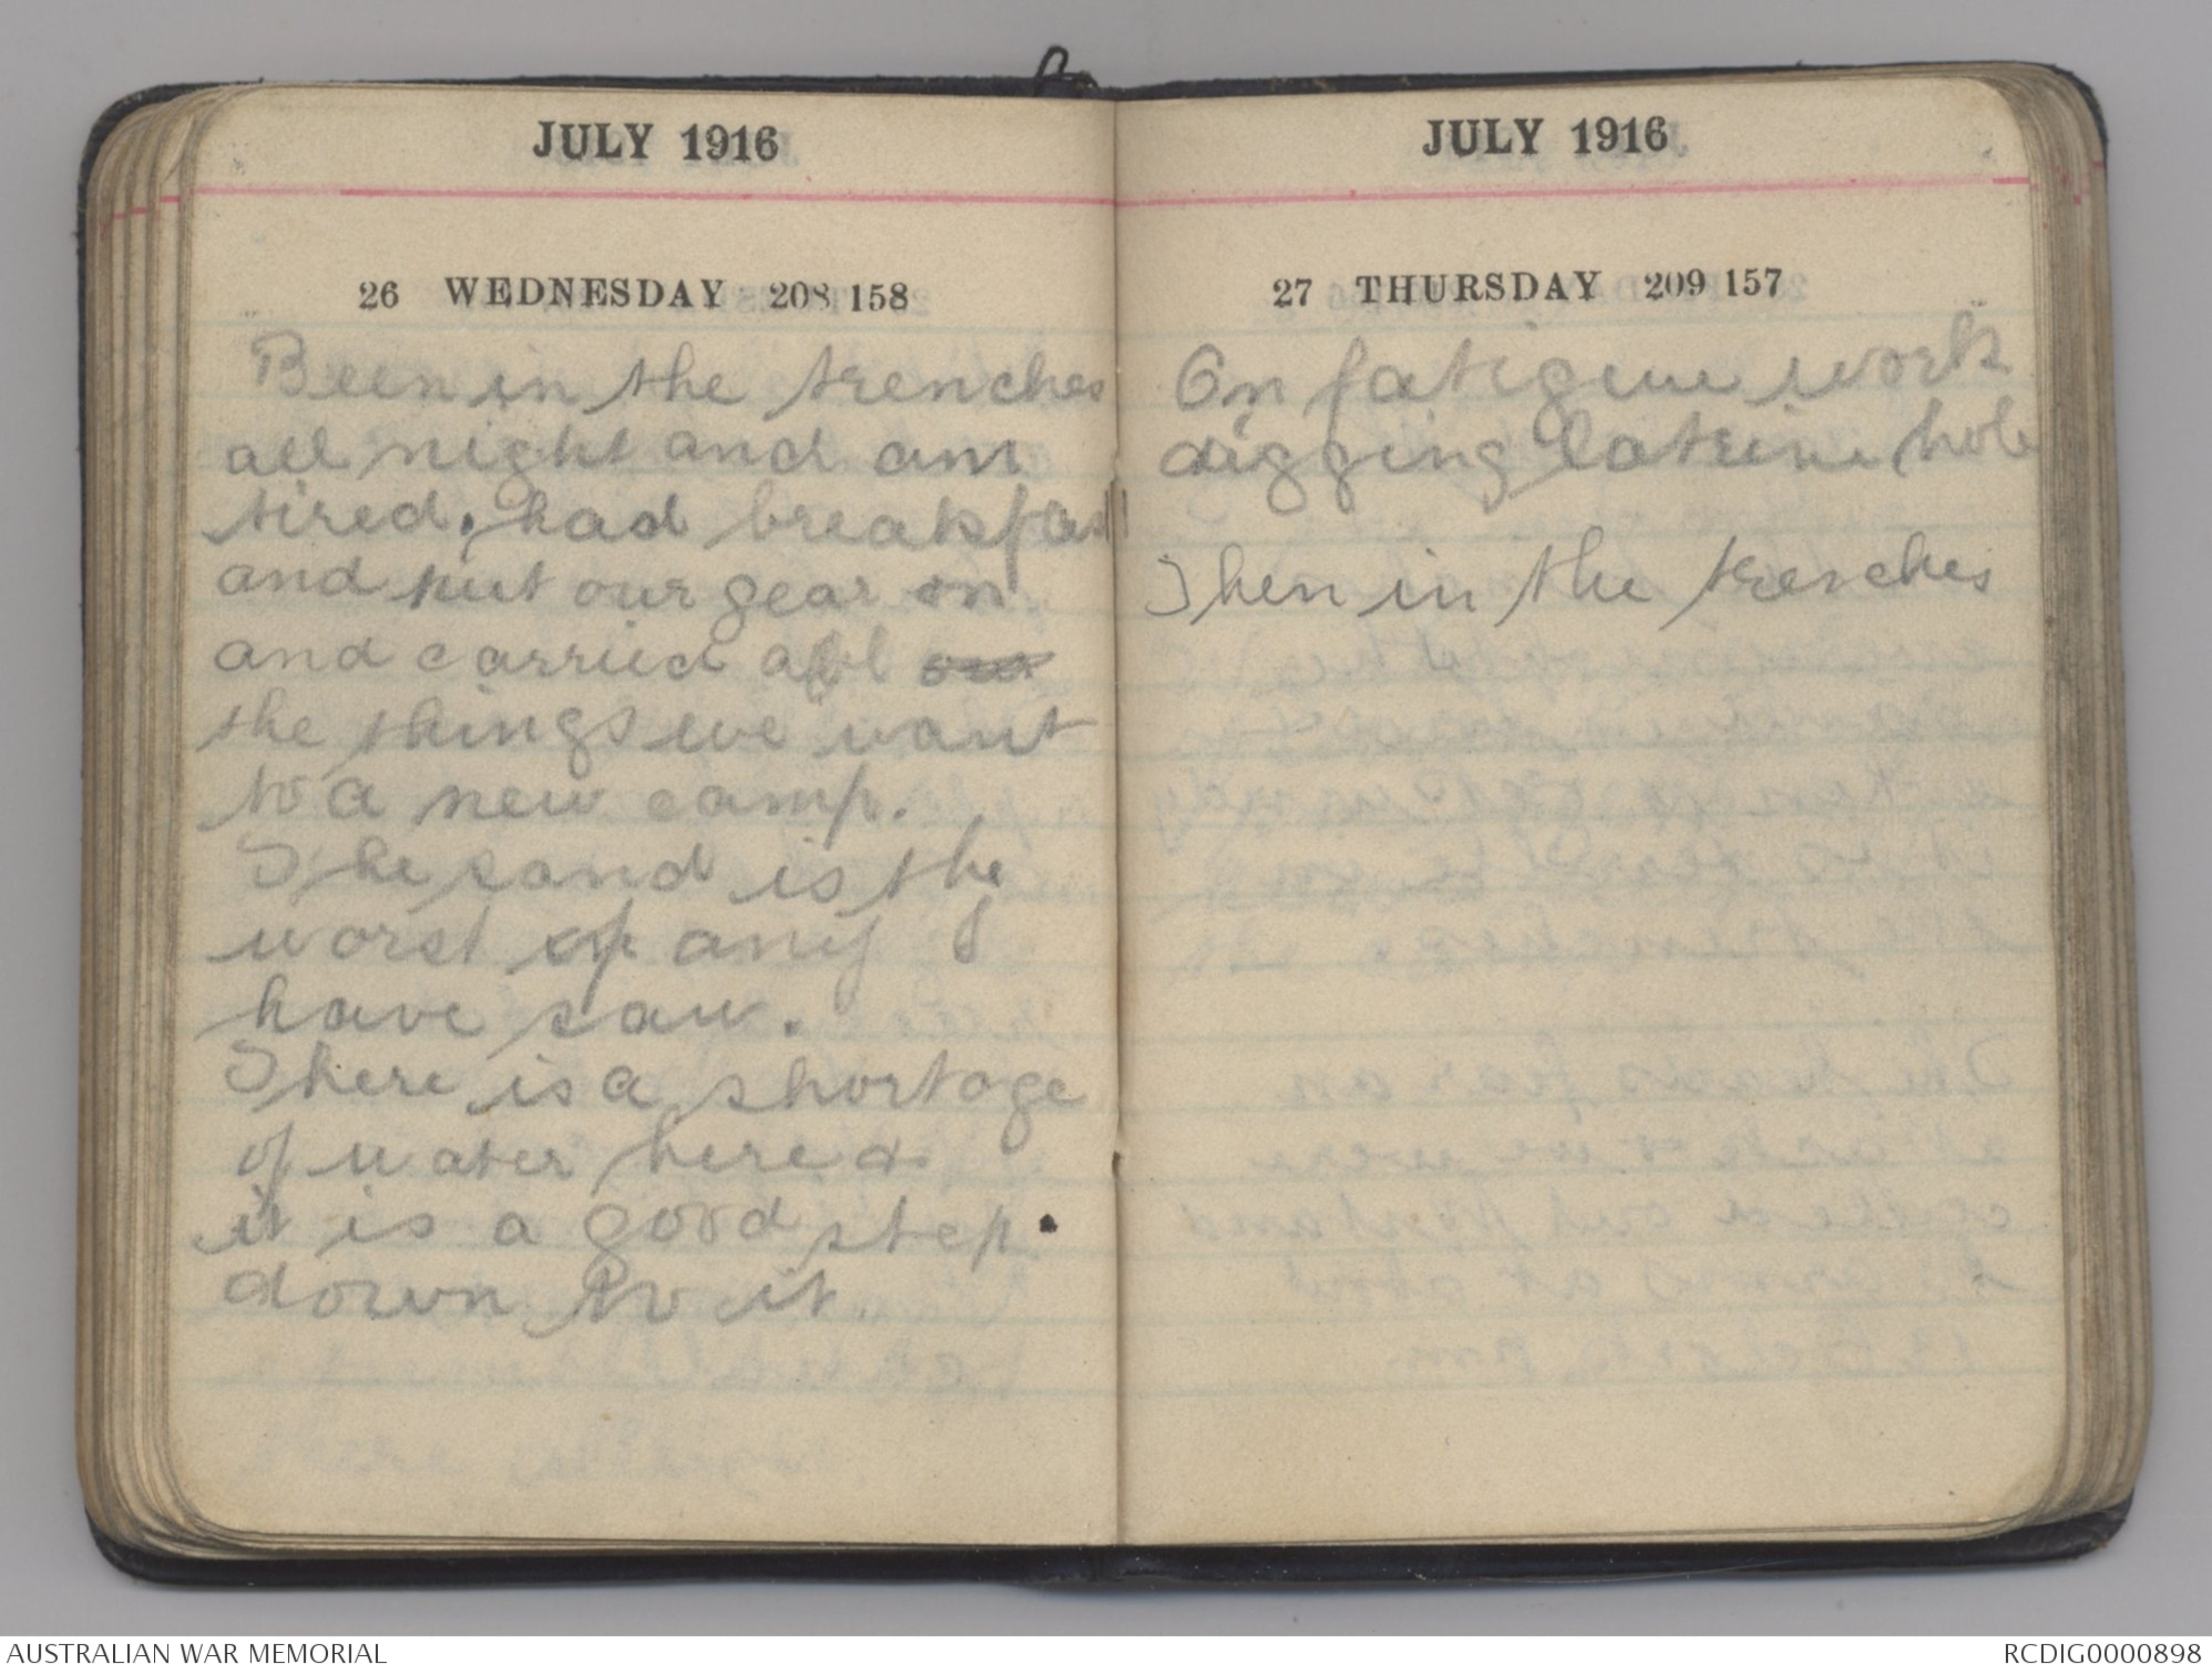 JULY 1916
26 WEDNESDAY 208 158
Been in the trenches
all night and am
tired. had breakfast
and put our gear on
and carried all our
the things we want
to a new camp.
The sand is the
worst of any I
have saw.
There is a shortage
of water here &
it is a good step.
down to it.
JULY 1916
27 THURSDAY 209 157
On fatigue work
digging latrine hole
Then in the trenches
AUSTRALIAN WAR MEMORIAL
RCDIG0000898